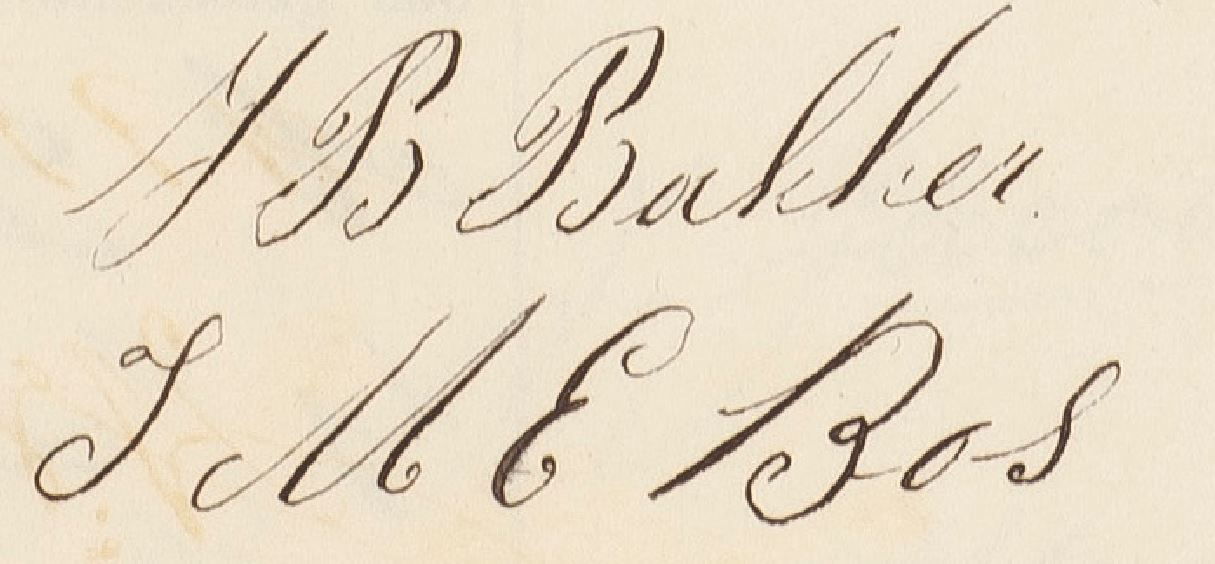 J B Bakker
J M E Bos